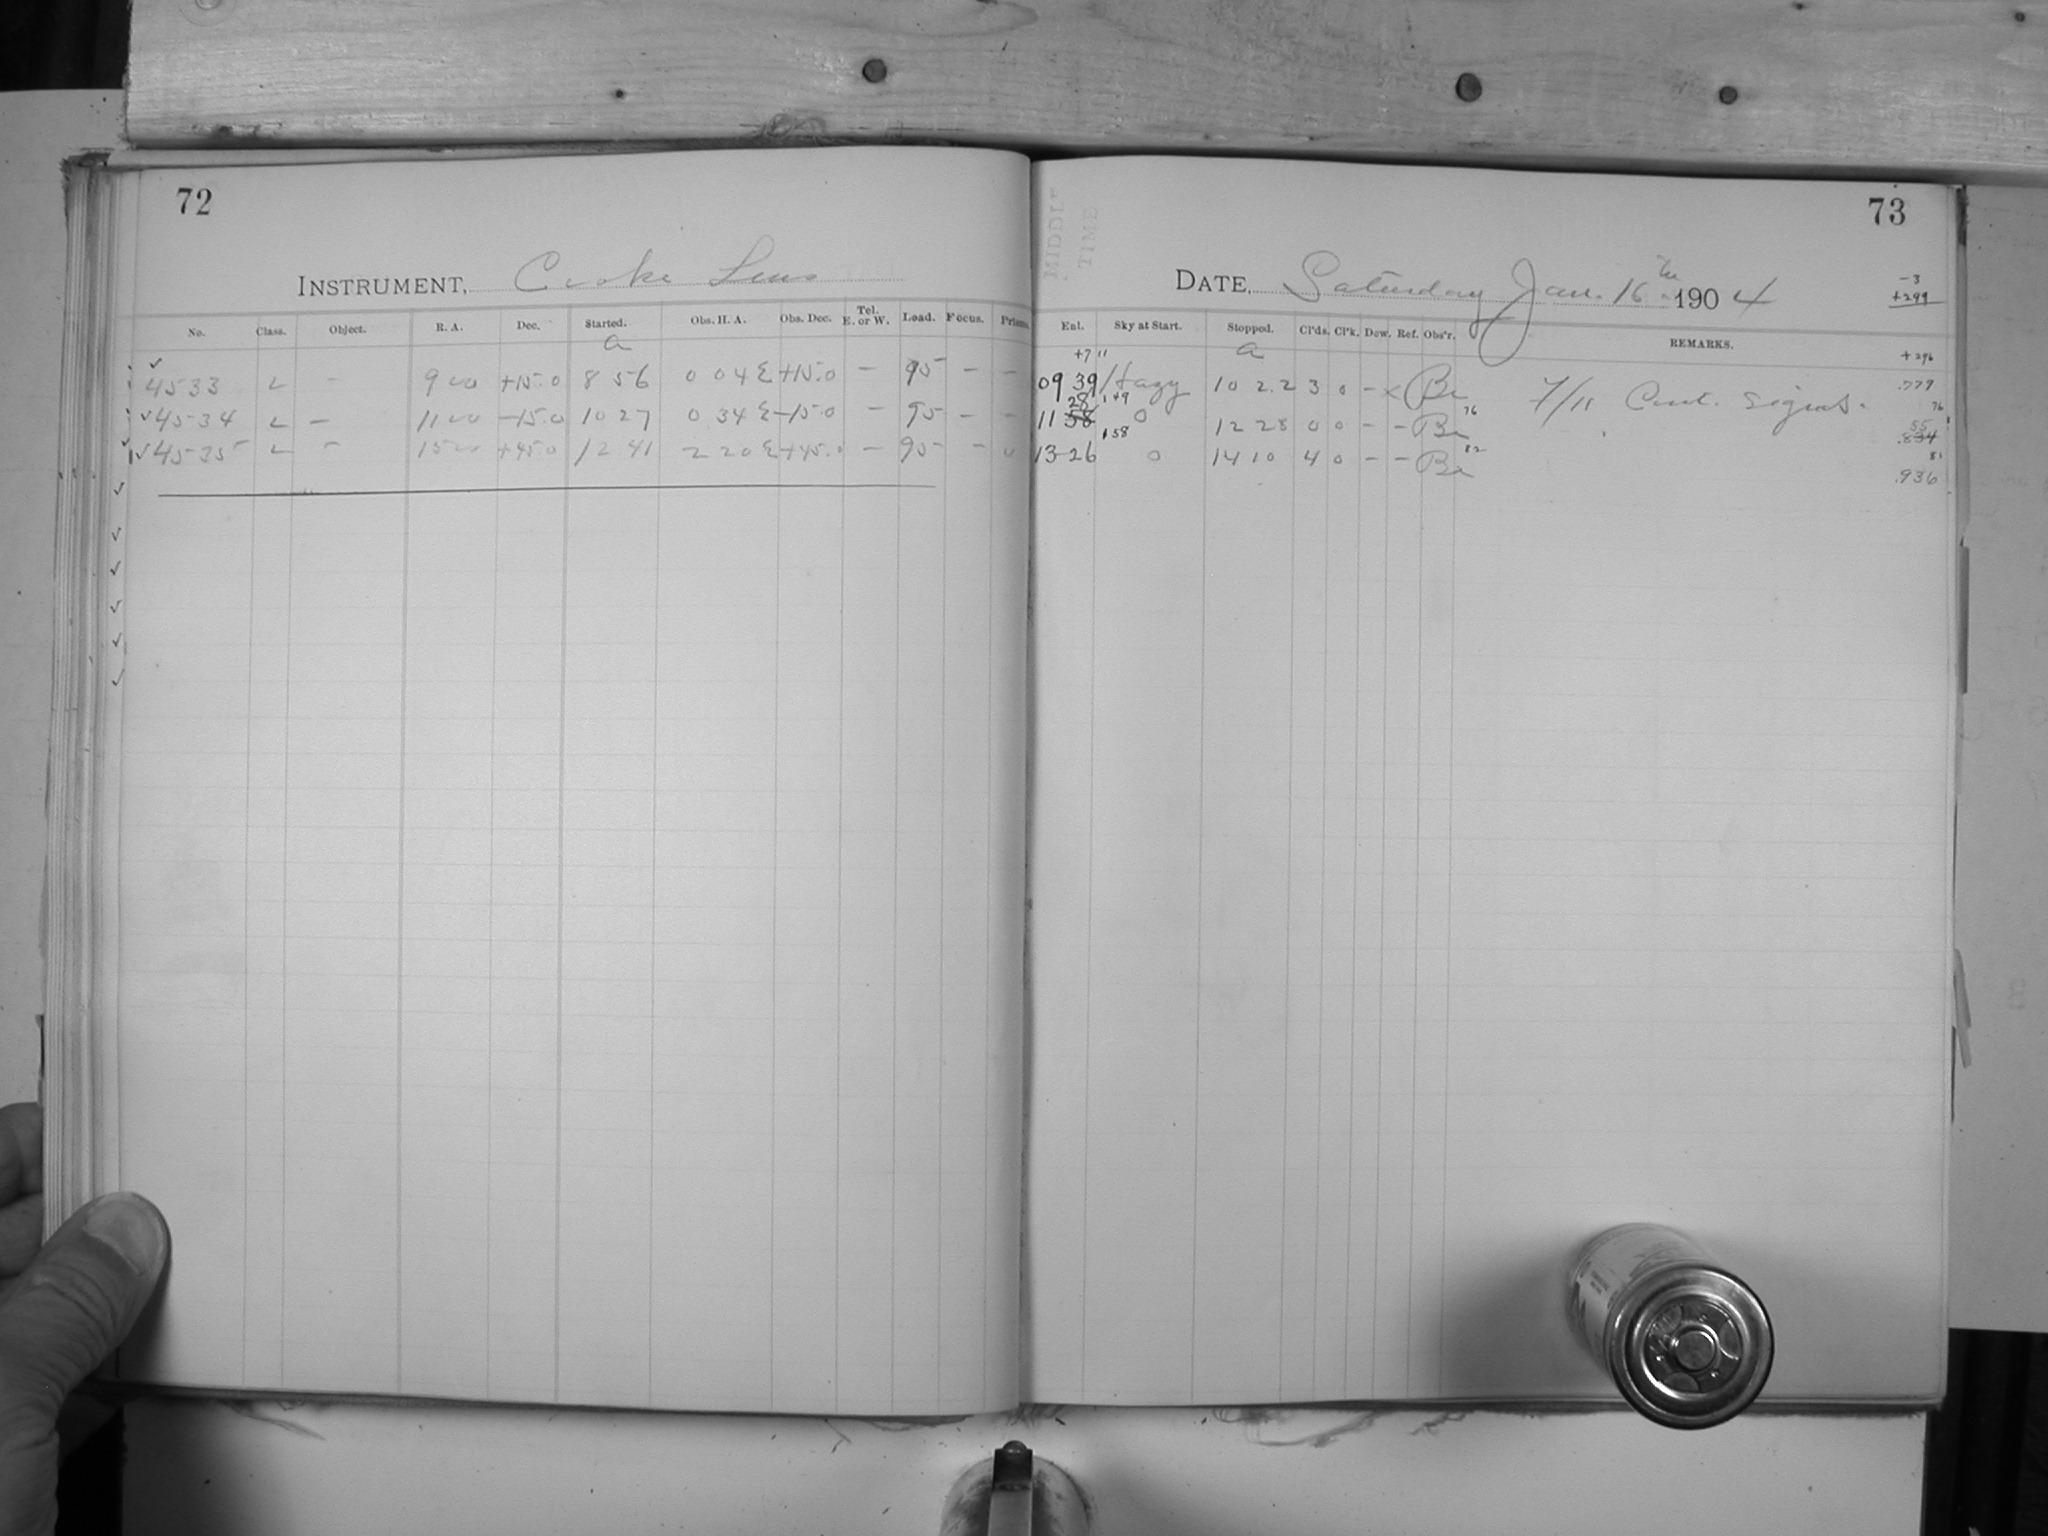 72
INSTRUMENT, Cooke Lens
No. Class. Object. R. A. Dec. Started. Obs. H. A. Obs. Dec. Tel. E. or W. Load. Focus. Prisms.
a
✓
4533 L – 9 00 +15.0 8 56 0 04 E +15.0 – 95 – –
✓4534 L – 11 00 –15.0 10 27 0 34 E –15.0 – 95 – –
✓4535 L – 15 00 +45.0 12 41 2 20 E +45.0 – 95 – 0
73
MIDDLE
TIME
DATE, Saturday Jan. 16th 1904
–3
+299
Enl. Sky at Start. Stopped. Cl'ds. Cl'k. Dew. Ref. Obs'r. REMARKS.
+7 11 a +296
09 39 Hazy 10 22 3 0 – × Be 7/11 Cent. Signs. .777
28 149 76 76
11 58 0 12 28 0 0 – – Be 55 .834
158 82 81
13 26 0 14 10 4 0 – – Be .936